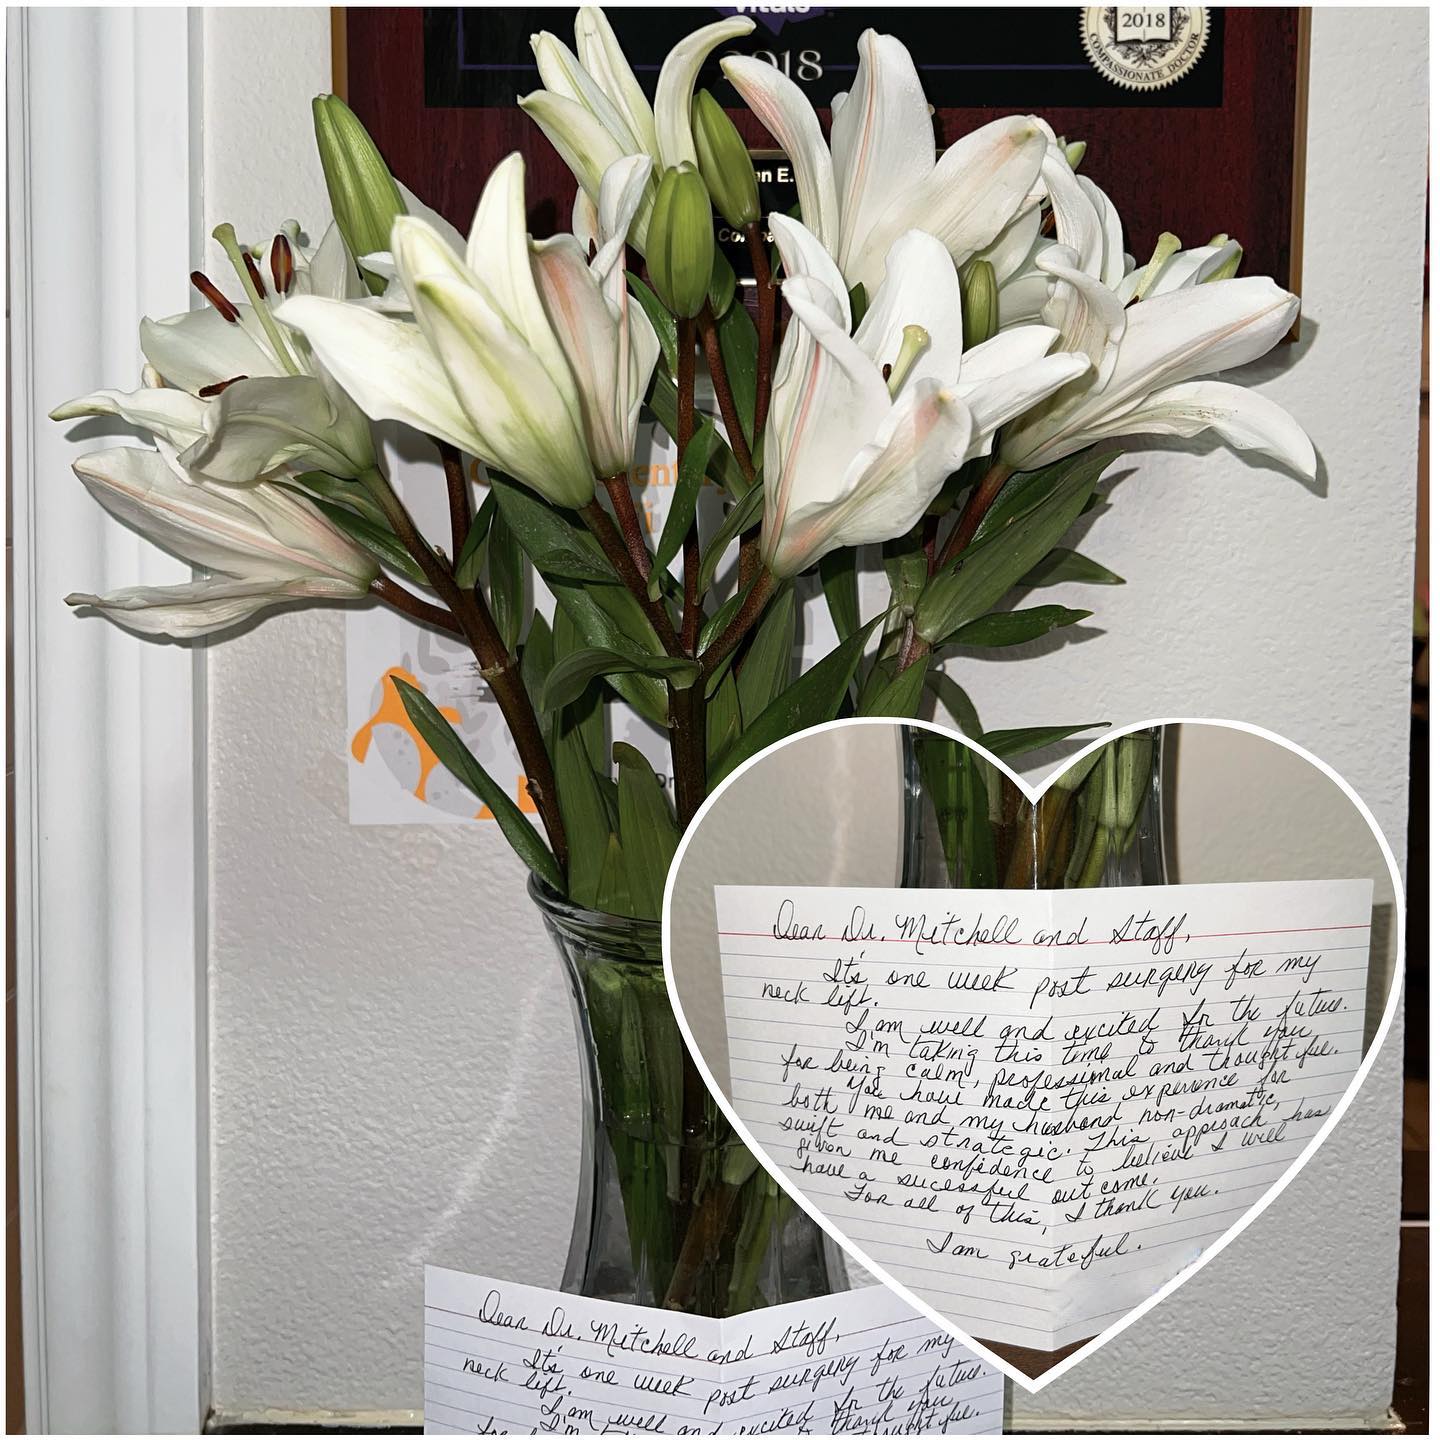 Vitals
2018
2018
COMPASSIONATE DOCTOR
n E.
Dear Dr. Mitchell and Staff,
It's one week post surgery for my
neck lift.
I am well and excited for the future.
I'm taking this time to thank you
for being calm, professional and thoughtful.
You have made this experience for
both me and my husband non-dramatic,
swift and strategic. This approach has
given me confidence to believe I will
have a sucessful outcome.
For all of this, I thank you.
I am grateful.
Dear Dr. Mitchell and Staff,
It's one week post surgery for my
neck lift.
I am well and excited for the future.
I'm taking this time to thank you